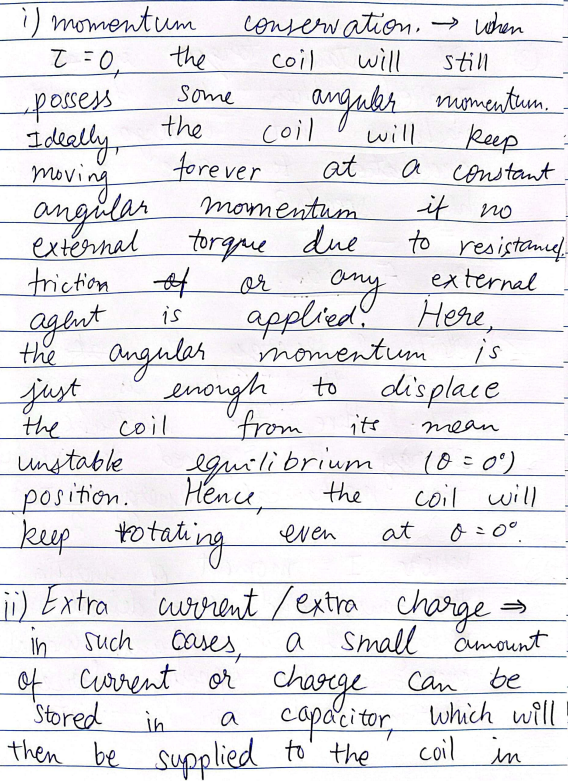 i) momentum conservation. → when
τ = 0, the coil will still
possess some angular momentum.
Ideally, the coil will keep
moving forever at a constant
angular momentum if no
external torque due to resistance,
friction of or any external
agent is applied. Here,
the angular momentum is
just enough to displace
the coil from its mean
unstable equilibrium (θ = 0°)
position. Hence, the coil will
keep rotating even at θ = 0°.
ii) Extra current / extra charge ⇒
in such cases, a small amount
of current or charge can be
stored in a capacitor, which will
then be supplied to the coil in